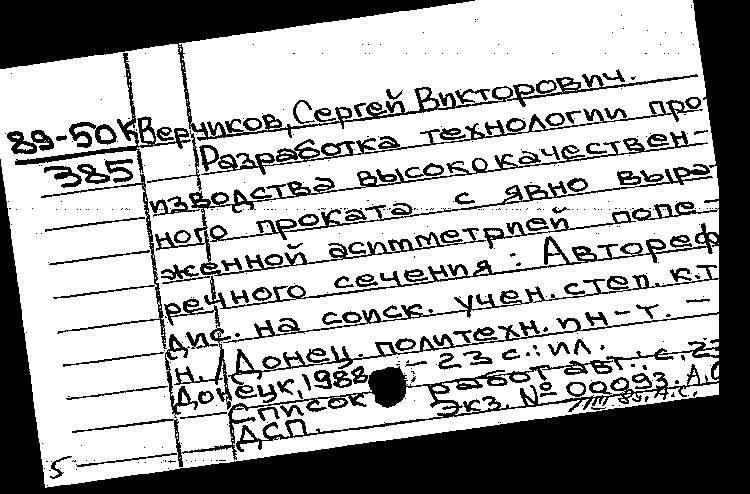 89-50К
385
Верчиков, Сергей Викторович.
Разработка технологии про-
изводства высококачествен-
ного проката с явно выра-
женной асимметрией попе-
речного сечения: Автореф
дис. на соиск. учен. степ. к.т.
н. / Донец. политехн. ин-т. —
Донецк, 1988. — 23 с.: ил.
Список работ авт.: с. 23
Экз. № 00093.
ДСП.
5